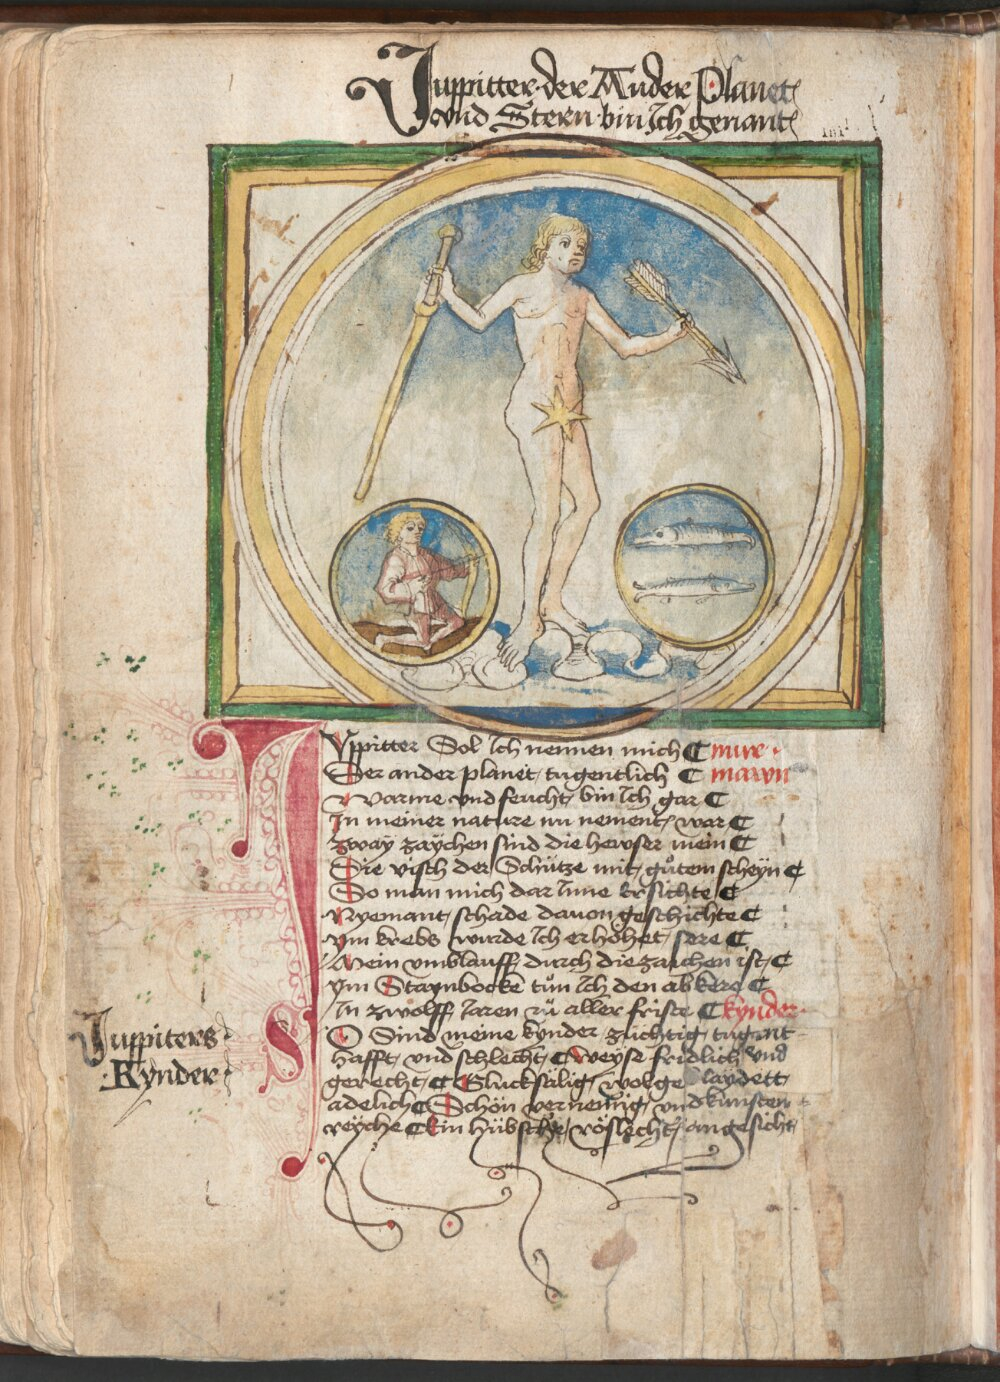 Juppitter der Ander Planet
vnd Stern bin Ich genant
Vppitter Sol Ich nennen mich
Der ander planet tugentlich
warme vnd feucht bin Ich gar
In meiner nature nu nement war
zway zaÿchen sind die hewser mein
Die visch der Schütze mit gůtem scheyn
So man mich dar Inne ersichte
Nyemant schade dauon geschichte
ym krebs wurde Ich erhöhet sere
Mein vmblauff durch die zaichen ist
ym Staynbocke tůn Ich den abkere
In zwölff Jaren zů aller friste kynder
O Sind meine kynder züchtig tugent
hafft vnd schlecht weÿse fridlich vnd
gerecht Glucksälig wolge laydett
adelich Schön vernemig vnd künsten
reÿche Ein hübsche röslecht angesicht
Juppiters
Kynder